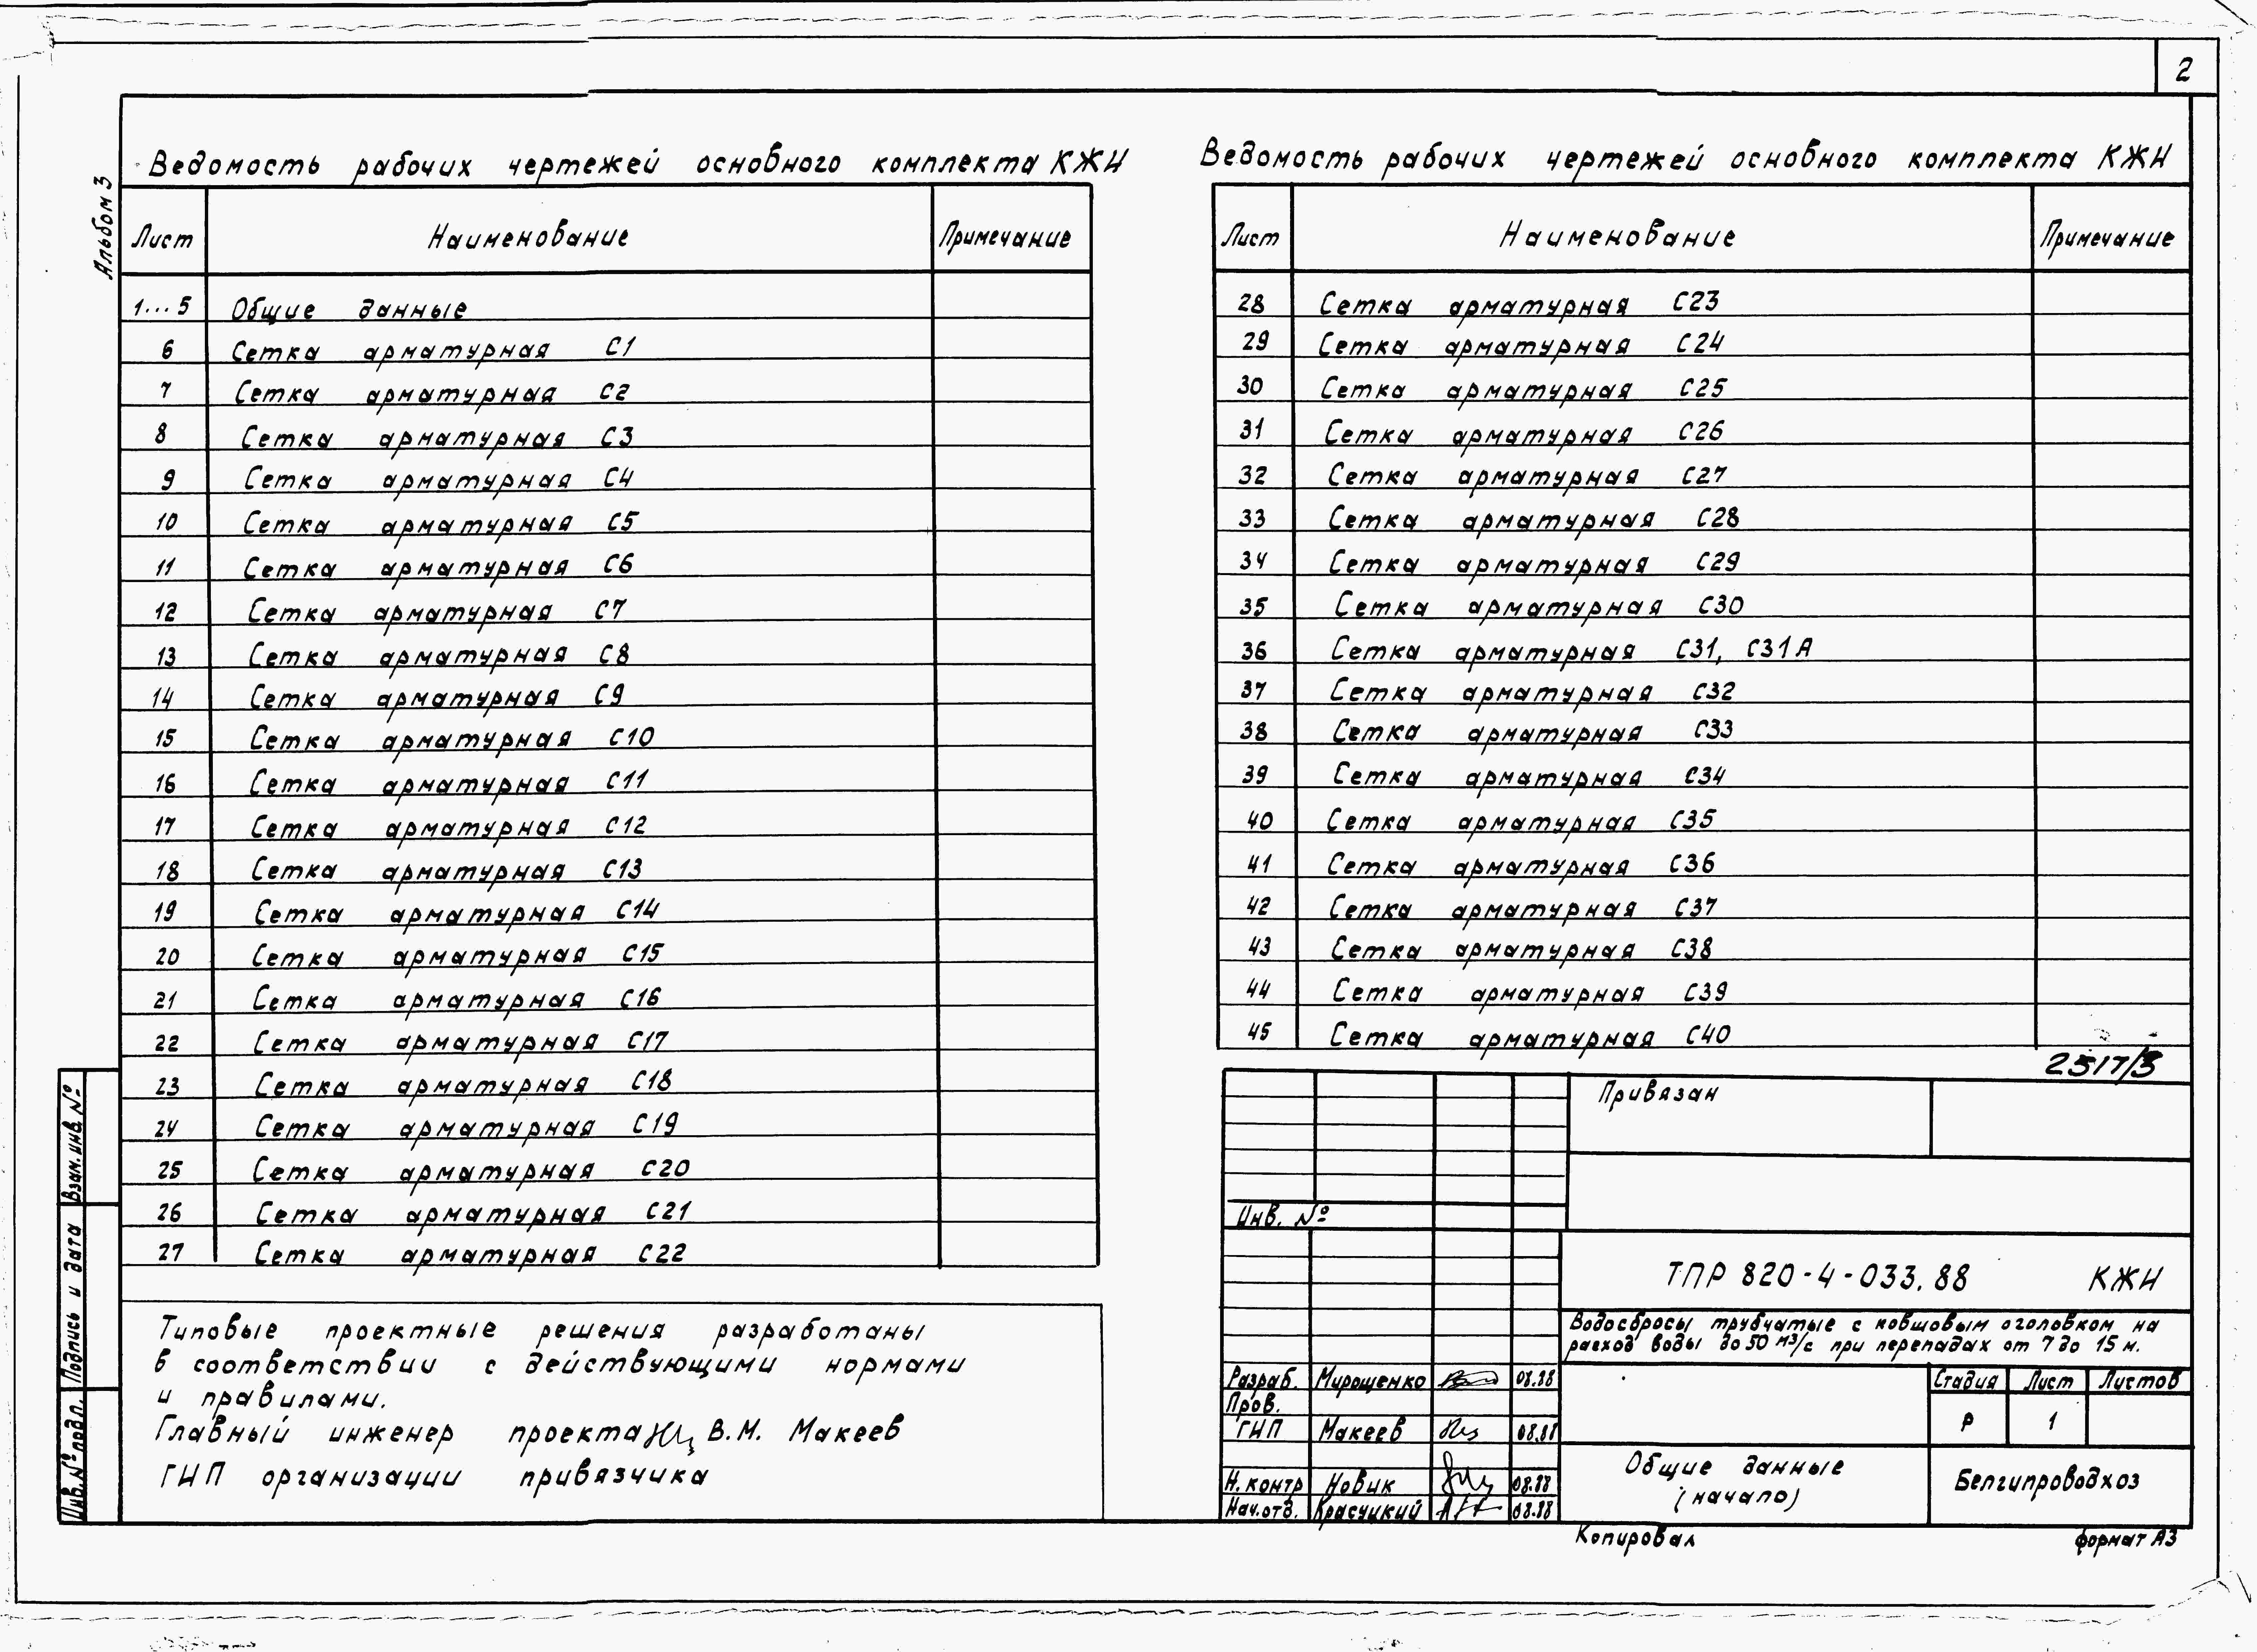 2
Альбом 3
Ведомость рабочих чертежей основного комплекта КЖИ
Лист Наименование Примечание
1...5 Общие данные
6 Сетка арматурная С1
7 Сетка арматурная С2
8 Сетка арматурная С3
9 Сетка арматурная С4
10 Сетка арматурная С5
11 Сетка арматурная С6
12 Сетка арматурная С7
13 Сетка арматурная С8
14 Сетка арматурная С9
15 Сетка арматурная С10
16 Сетка арматурная С11
17 Сетка арматурная С12
18 Сетка арматурная С13
19 Сетка арматурная С14
20 Сетка арматурная С15
21 Сетка арматурная С16
22 Сетка арматурная С17
23 Сетка арматурная С18
24 Сетка арматурная С19
25 Сетка арматурная С20
26 Сетка арматурная С21
27 Сетка арматурная С22
Типовые проектные решения разработаны
в соответствии с действующими нормами
и правилами.
Главный инженер проекта В.М. Макеев
ГИП организации привязчика
Взам. инв. №
Подпись и дата
Инв. № подл.
Ведомость рабочих чертежей основного комплекта КЖИ
Лист Наименование Примечание
28 Сетка арматурная С23
29 Сетка арматурная С24
30 Сетка арматурная С25
31 Сетка арматурная С26
32 Сетка арматурная С27
33 Сетка арматурная С28
34 Сетка арматурная С29
35 Сетка арматурная С30
36 Сетка арматурная С31, С31А
37 Сетка арматурная С32
38 Сетка арматурная С33
39 Сетка арматурная С34
40 Сетка арматурная С35
41 Сетка арматурная С36
42 Сетка арматурная С37
43 Сетка арматурная С38
44 Сетка арматурная С39
45 Сетка арматурная С40
2517/3
Привязан
Инв. №
ТПР 820-4-033.88 КЖИ
Водосбросы трубчатые с ковшовым оголовком на
расход воды до 50 м3/с при перепадах от 7 до 15 м.
Разраб. Мирошенко 08.88
Пров.
ГИП Макеев 08.88
Н. контр Новик 08.88
Нач. отд. Красуцкий 08.88
Стадия Лист Листов
Р 1
Общие данные
(начало)
Белгипроводхоз
Копировал
формат А3